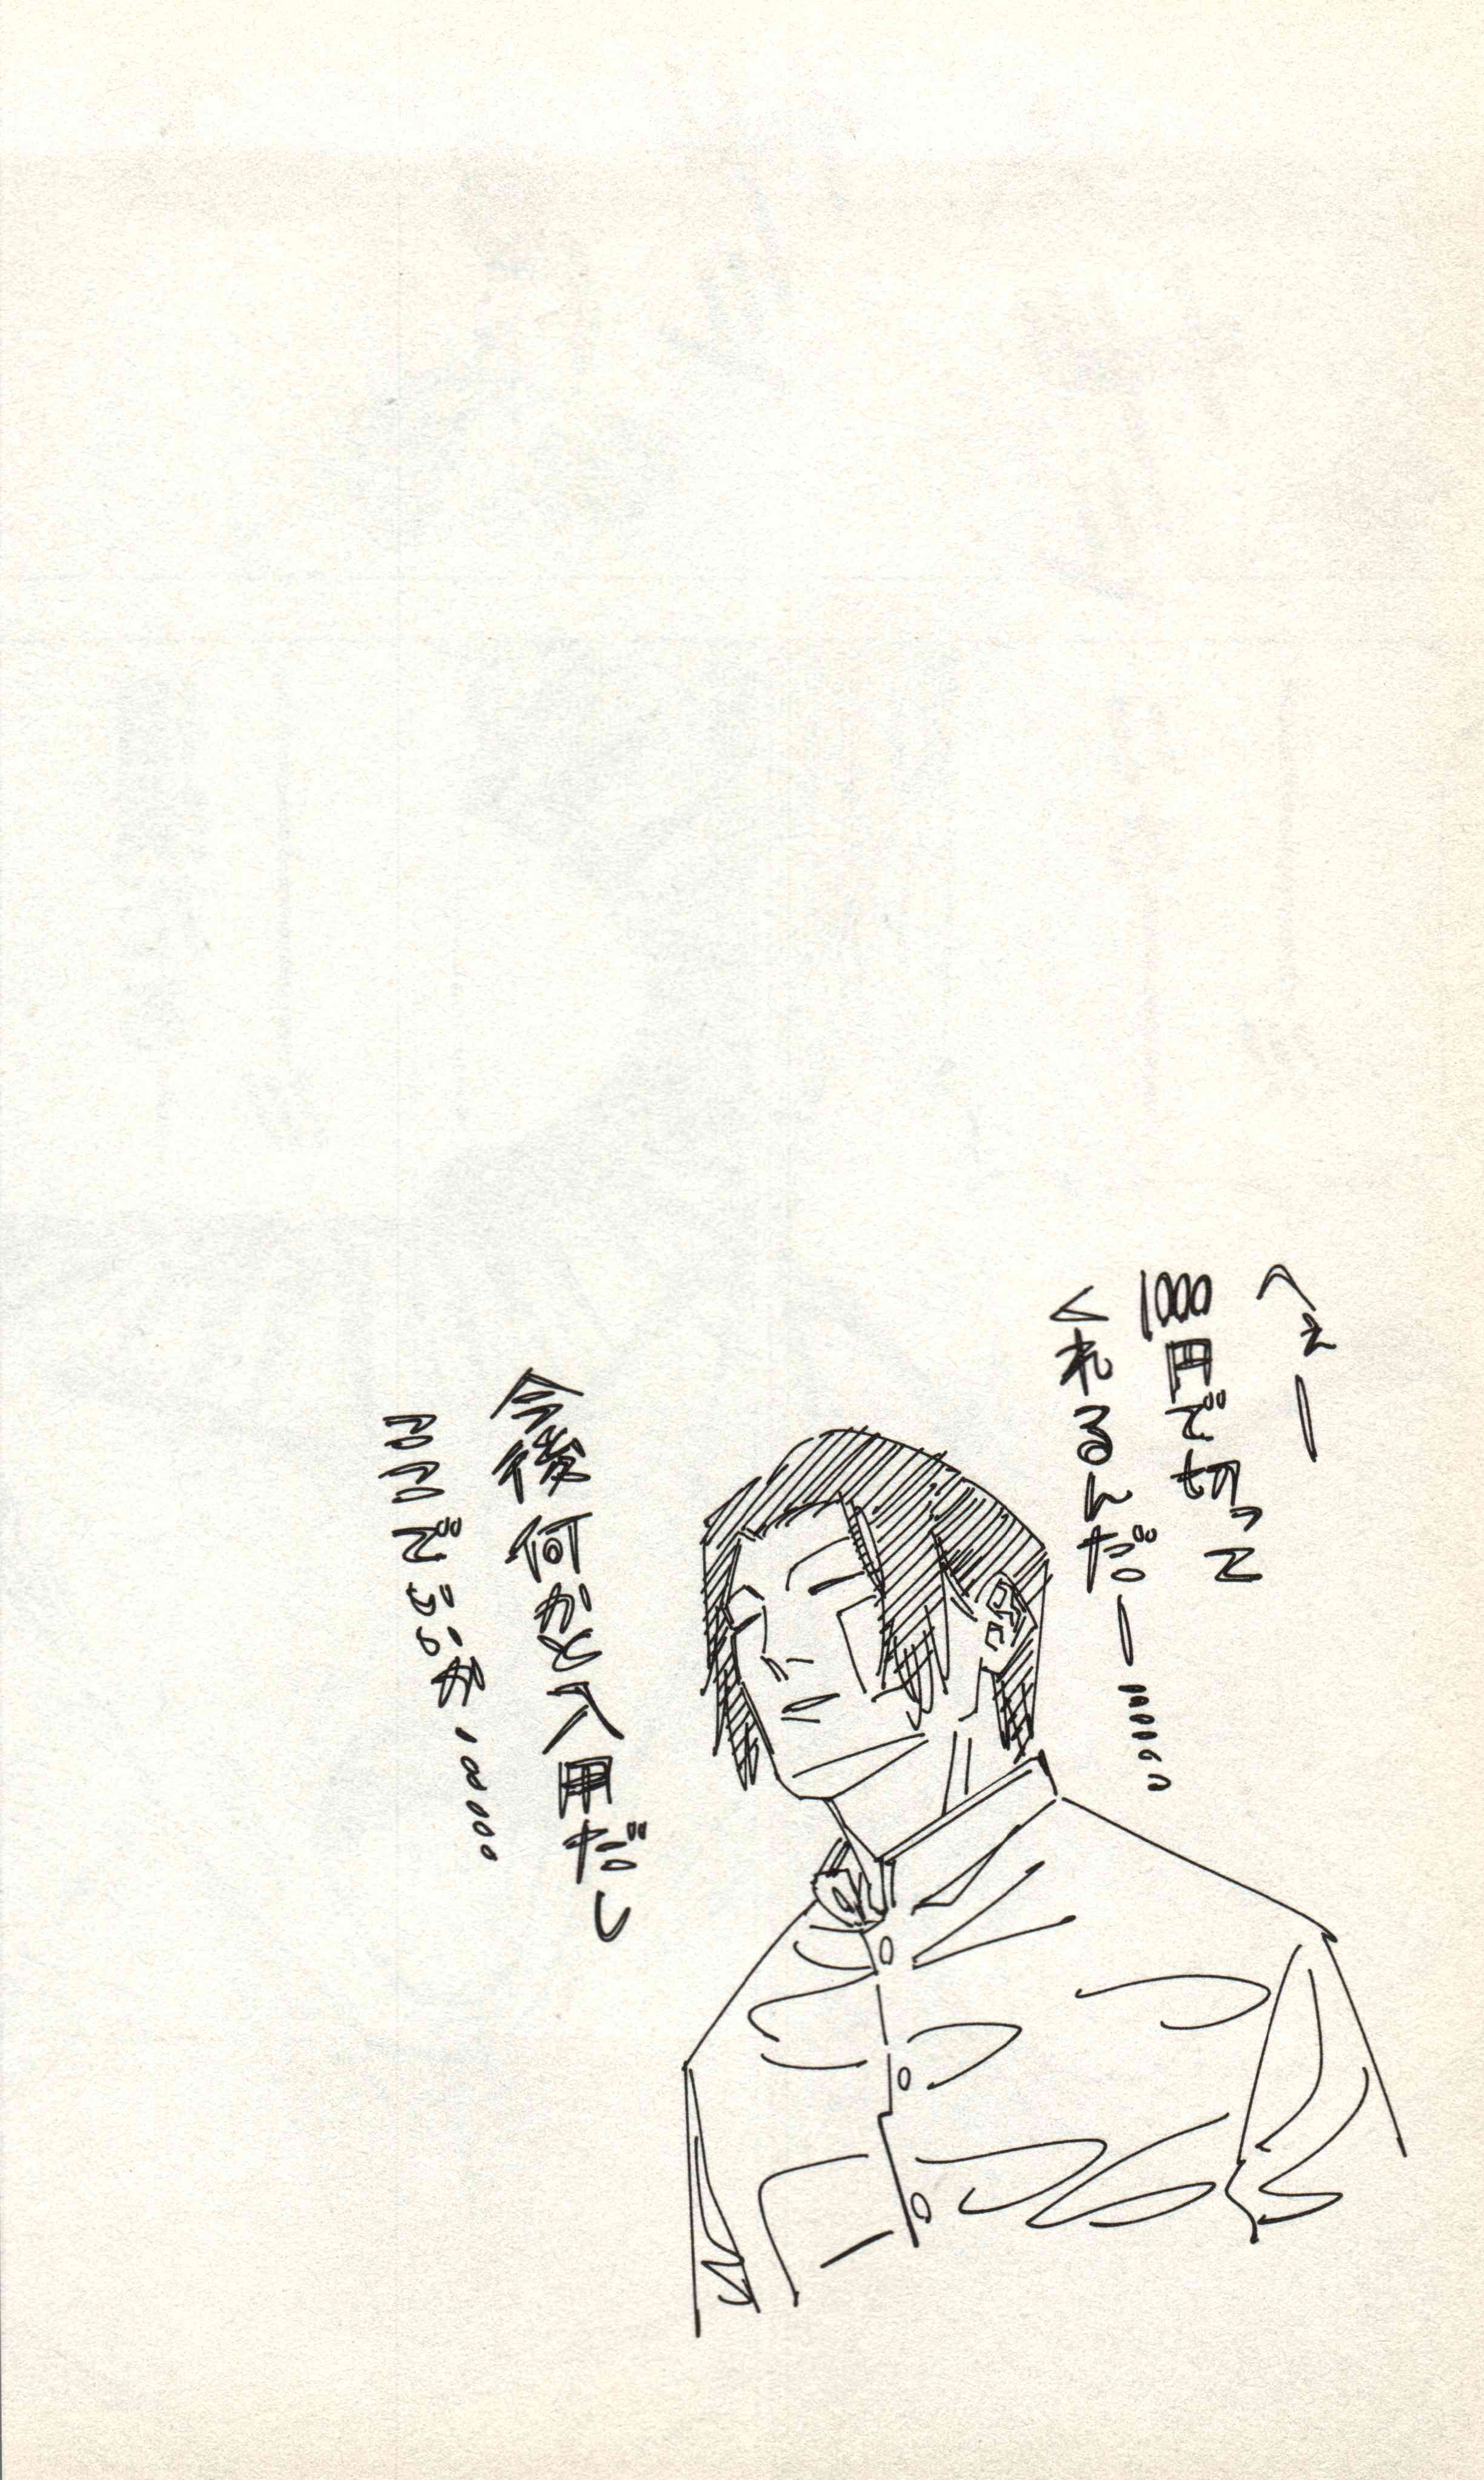 へぇー
1000円で切って
くれるんだー……
今後何かと入用だし
ココでいいか……